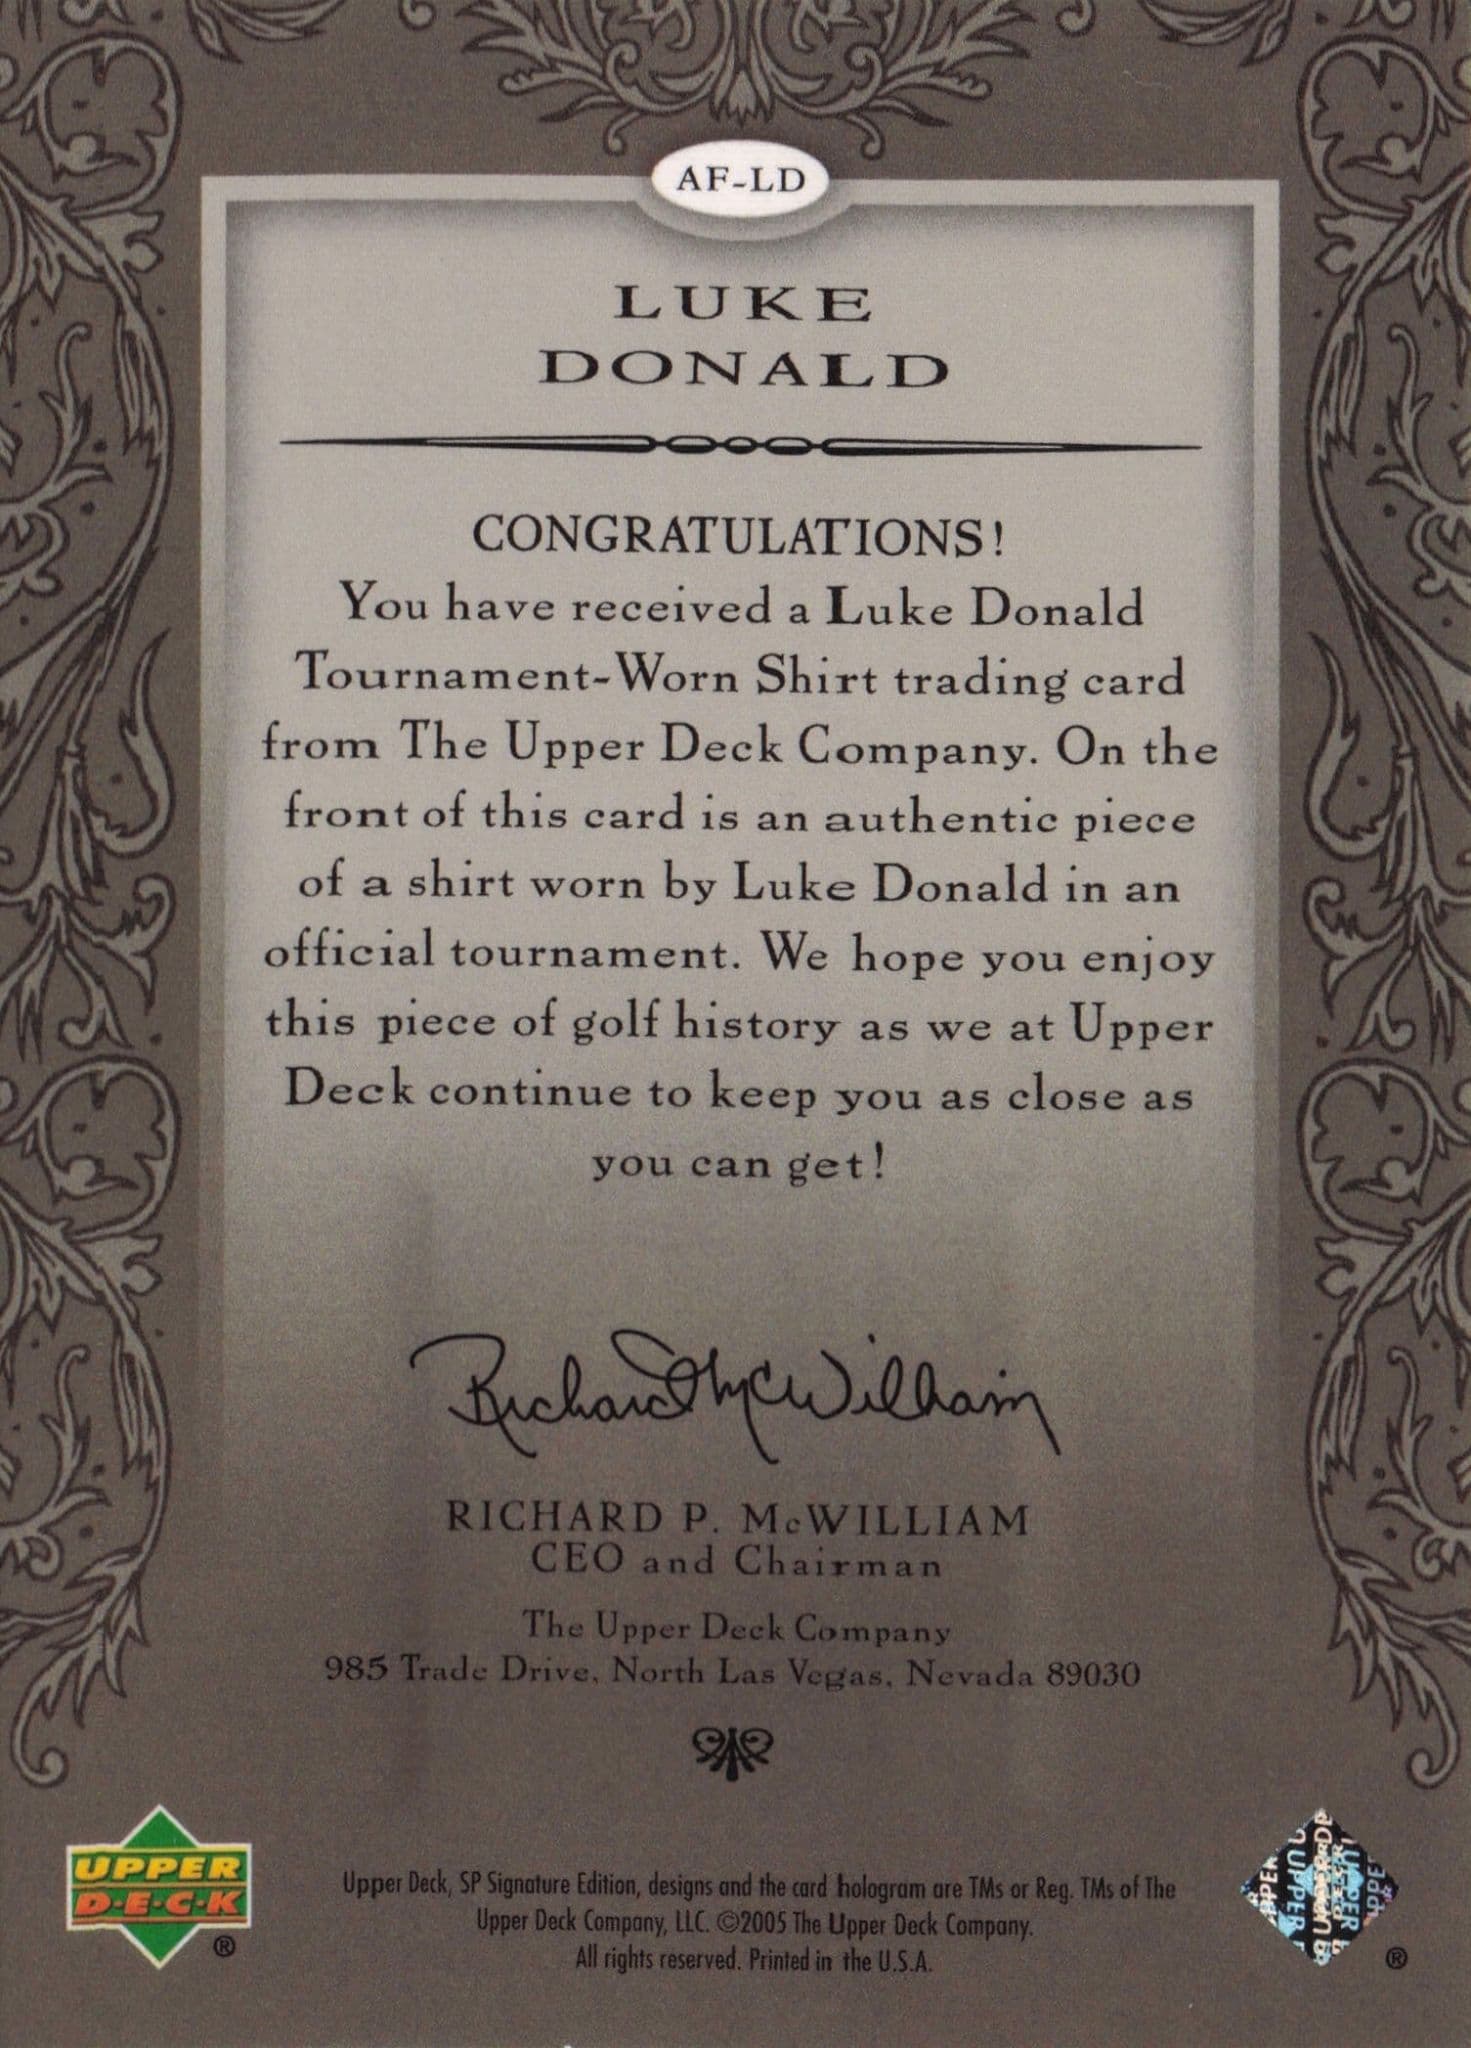 AF-LD
LUKE
DONALD
CONGRATULATIONS!
You have received a Luke Donald
Tournament-Worn Shirt trading card
from The Upper Deck Company. On the
front of this card is an authentic piece
of a shirt worn by Luke Donald in an
official tournament. We hope you enjoy
this piece of golf history as we at Upper
Deck continue to keep you as close as
you can get!
Richard McWilliam
RICHARD P. McWILLIAM
CEO and Chairman
The Upper Deck Company
985 Trade Drive, North Las Vegas, Nevada 89030
UPPER
D·E·C·K
®
Upper Deck, SP Signature Edition, designs and the card hologram are TMs or Reg. TMs of The
Upper Deck Company, LLC. ©2005 The Upper Deck Company.
All rights reserved. Printed in the U.S.A.
®